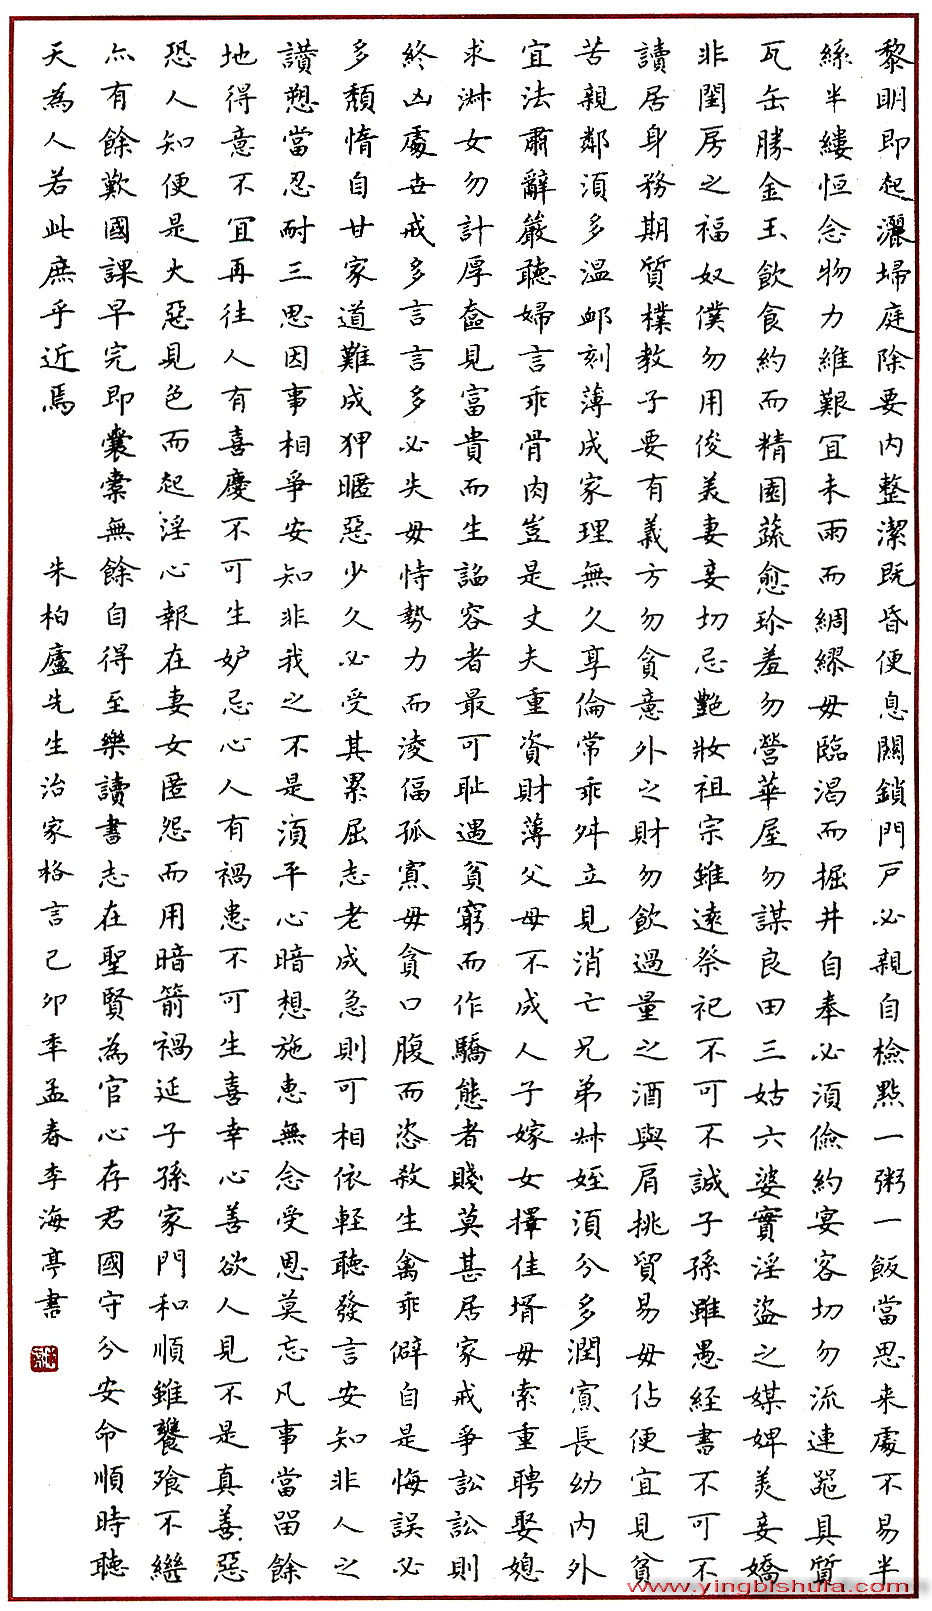 黎明即起灑埽庭除要内整潔既昏便息關鎖門戶必親自檢點一粥一飯當思来處不易半
絲半縷恒念物力維艱宜未雨而綢繆毋臨渴而掘井自奉必須儉約宴客切勿流連器具質
瓦缶勝金玉飲食約而精園蔬愈珍羞勿營華屋勿謀良田三姑六婆實淫盜之媒婢美妾嬌
非閨房之福奴僕勿用俊美妻妾切忌艷妝祖宗雖遠祭祀不可不誠子孫雖愚經書不可不
讀居身務期質樸教子要有義方勿貪意外之財勿飲過量之酒與肩挑貿易毋佔便宜見貧
苦親鄰須多温卹刻薄成家理無久享倫常乖舛立見消亡兄弟叔姪須分多潤寡長幼内外
宜法肅辭嚴聽婦言乖骨肉豈是丈夫重資財薄父母不成人子嫁女擇佳壻毋索重聘娶媳
求淑女勿計厚奩見富貴而生諂容者最可恥遇貧窮而作驕態者賤莫甚居家戒爭訟訟則
終凶處世戒多言言多必失毋恃勢力而淩偪孤寡毋貪口腹而恣殺生禽乖僻自是悔誤必
多頹惰自甘家道難成狎暱惡少久必受其累屈志老成急則可相依輕聽發言安知非人之
讃愬當忍耐三思因事相爭安知非我之不是須平心暗想施惠無念受恩莫忘凡事當留餘
地得意不宜再往人有喜慶不可生妒忌心人有禍患不可生喜幸心善欲人見不是真善惡
恐人知便是大惡見色而起淫心報在妻女匿怨而用暗箭禍延子孫家門和順雖饔飧不繼
亦有餘歡國課早完即囊橐無餘自得至樂讀書志在聖賢為官心存君國守分安命順時聽
天為人若此庶乎近焉 朱柏廬先生治家格言己卯年孟春李海亭書
www.yingbishufa.com